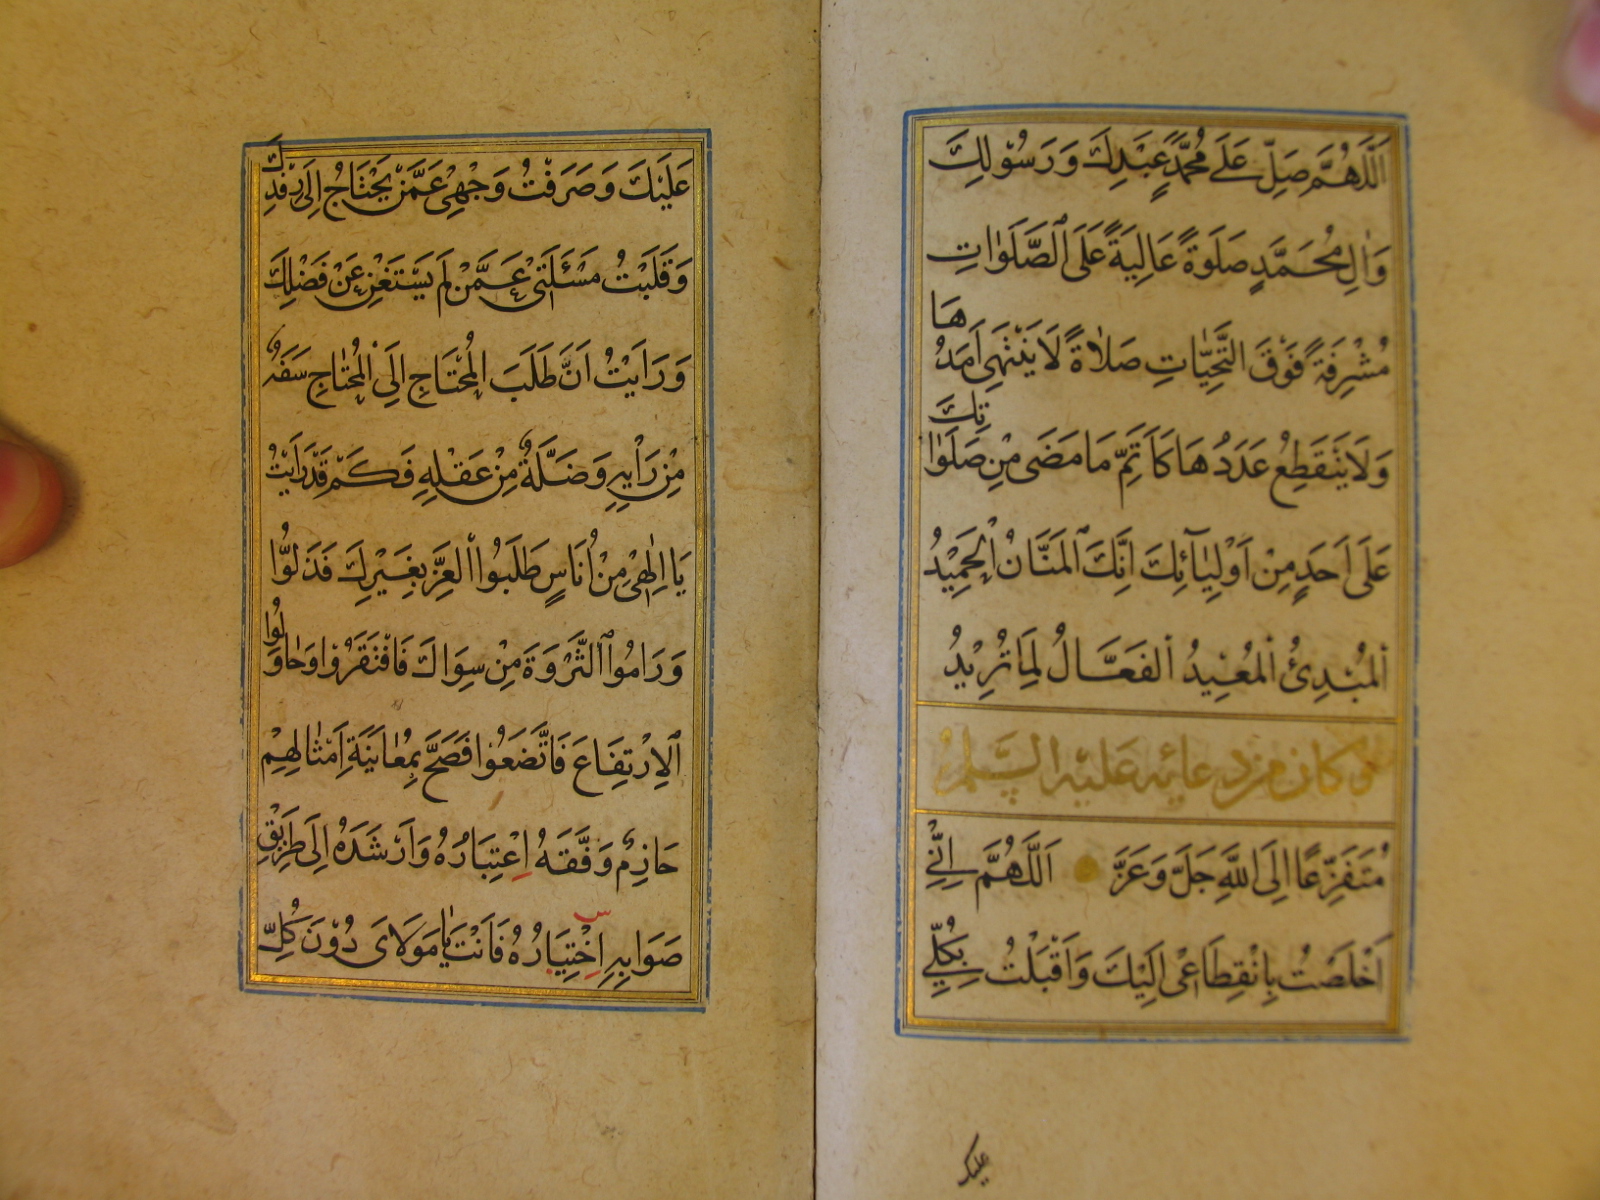 اَللّٰهُمَّ صَلِّ عَلَى مُحَمَّدٍ عَبْدِكَ وَرَسُوْلِكَ
وَاٰلِ مُحَمَّدٍ صَلَوةً عَالِيَةً عَلَى الصَّلَوٰاتِ
مُشْرِفَةً فَوْقَ التَّحِيّٰاتِ صَلاٰةً لَا يَنْتَهِي اَمَدُهَا
وَلَا يَنْقَطِعُ عَدَدُهَا كَاَتَمِّ مَا مَضَى مِنْ صَلَوٰاتِكَ
عَلَى اَحَدٍ مِنْ اَوْلِيٰآئِكَ اِنَّكَ الْمَنَّانُ الْحَمِيْدُ
الْمُبْدِئُ الْمُعِيْدُ الْفَعَّالُ لِمَا تُرِيْدُ
وَكان من دعائه عَليْه السَّلمُ
مُتَفَزِّعًا اِلَى اللّٰهِ جَلَّ وَعَزَّ اَللّٰهُمَّ اِنّٖي
اَخْلَصْتُ بِانْقِطَاعى اِلَيْكَ وَاَقْبَلْتُ بِكُلِّي
عليك
عَلَيْكَ وَصَرَفْتُ وَجْهِىْ عَمَّنْ يَحْتَاجُ اِلَى رِفْدِكَ
وَقَلَبْتُ مَسْئَلَتى عَمَّنْ لَمْ يَسْتَغْنِ عَنْ فَضْلِكَ
وَرَاَيْتُ اَنَّ طَلَبَ الْمُحْتَاجِ اِلَى الْمُحْتٰاجِ سَفَهٌ
مِنْ رَأْيِهِ وَضَلَّةٌ مِنْ عَقْلِهِ فَكَمْ قَدْ رَاَيْتُ
يَا اِلٰهِىْ مِنْ اُنَاسٍ طَلَبُوا الْعِزَّ بِغَيْرِكَ فَذَلُّوْا
وَرَامُوا الثَّرْوَةَ مِنْ سِوَاكَ فَافْتَقَرُوْا وَحٰاوَلُوا
الْاِرْتِفَاعَ فَاتَّضَعُوْا فَصَحَّ بِمُعٰايَنَةِ اَمْثٰالِهِمْ
حَازِمٌ وَفَّقَهُ اِعْتِبَارُهُ وَاَرْشَدَهُ اِلَى طَرِيْقِ
صَوَابِهِ اِخْتِيَارُهُ فَاَنْتَ يٰا مَوْلَاىَ دُوْنَ كُلِّ